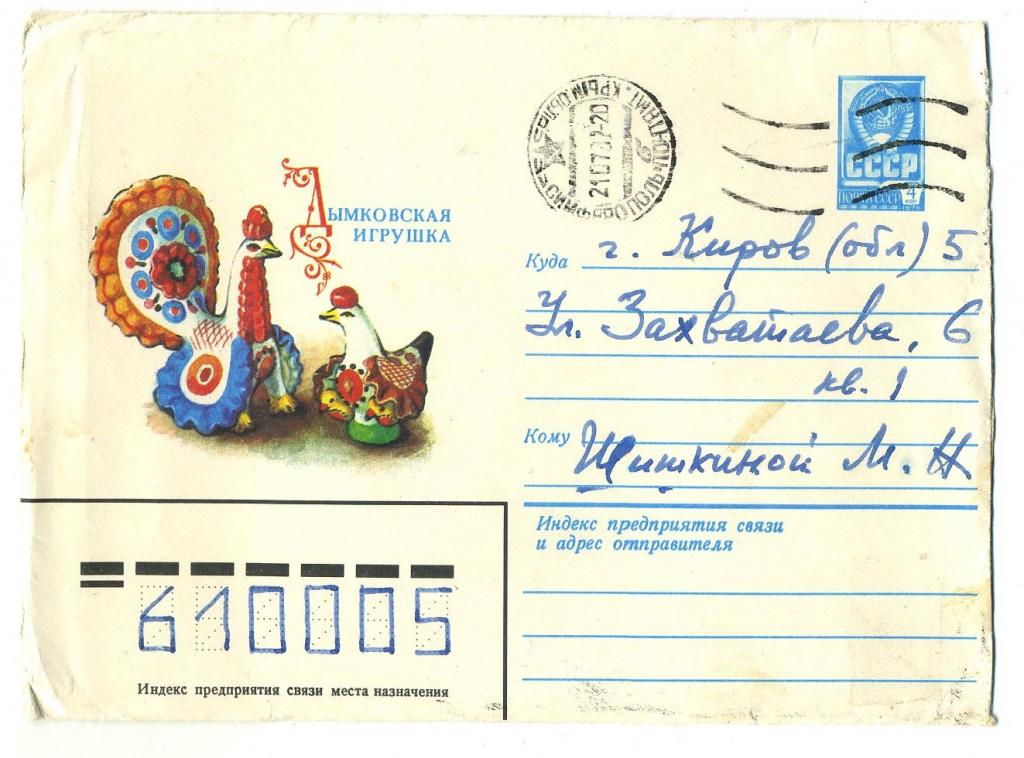 Дымковская
игрушка
СССР
ПОЧТА СССР
4
коп
1976
СИМФЕРОПОЛЬ
210782-20
Куда г. Киров (обл) 5
Ул. Захватаева, 6
кв. 1
Кому Шиткиной М. Н
Индекс предприятия связи
и адрес отправителя
610005
Индекс предприятия связи места назначения